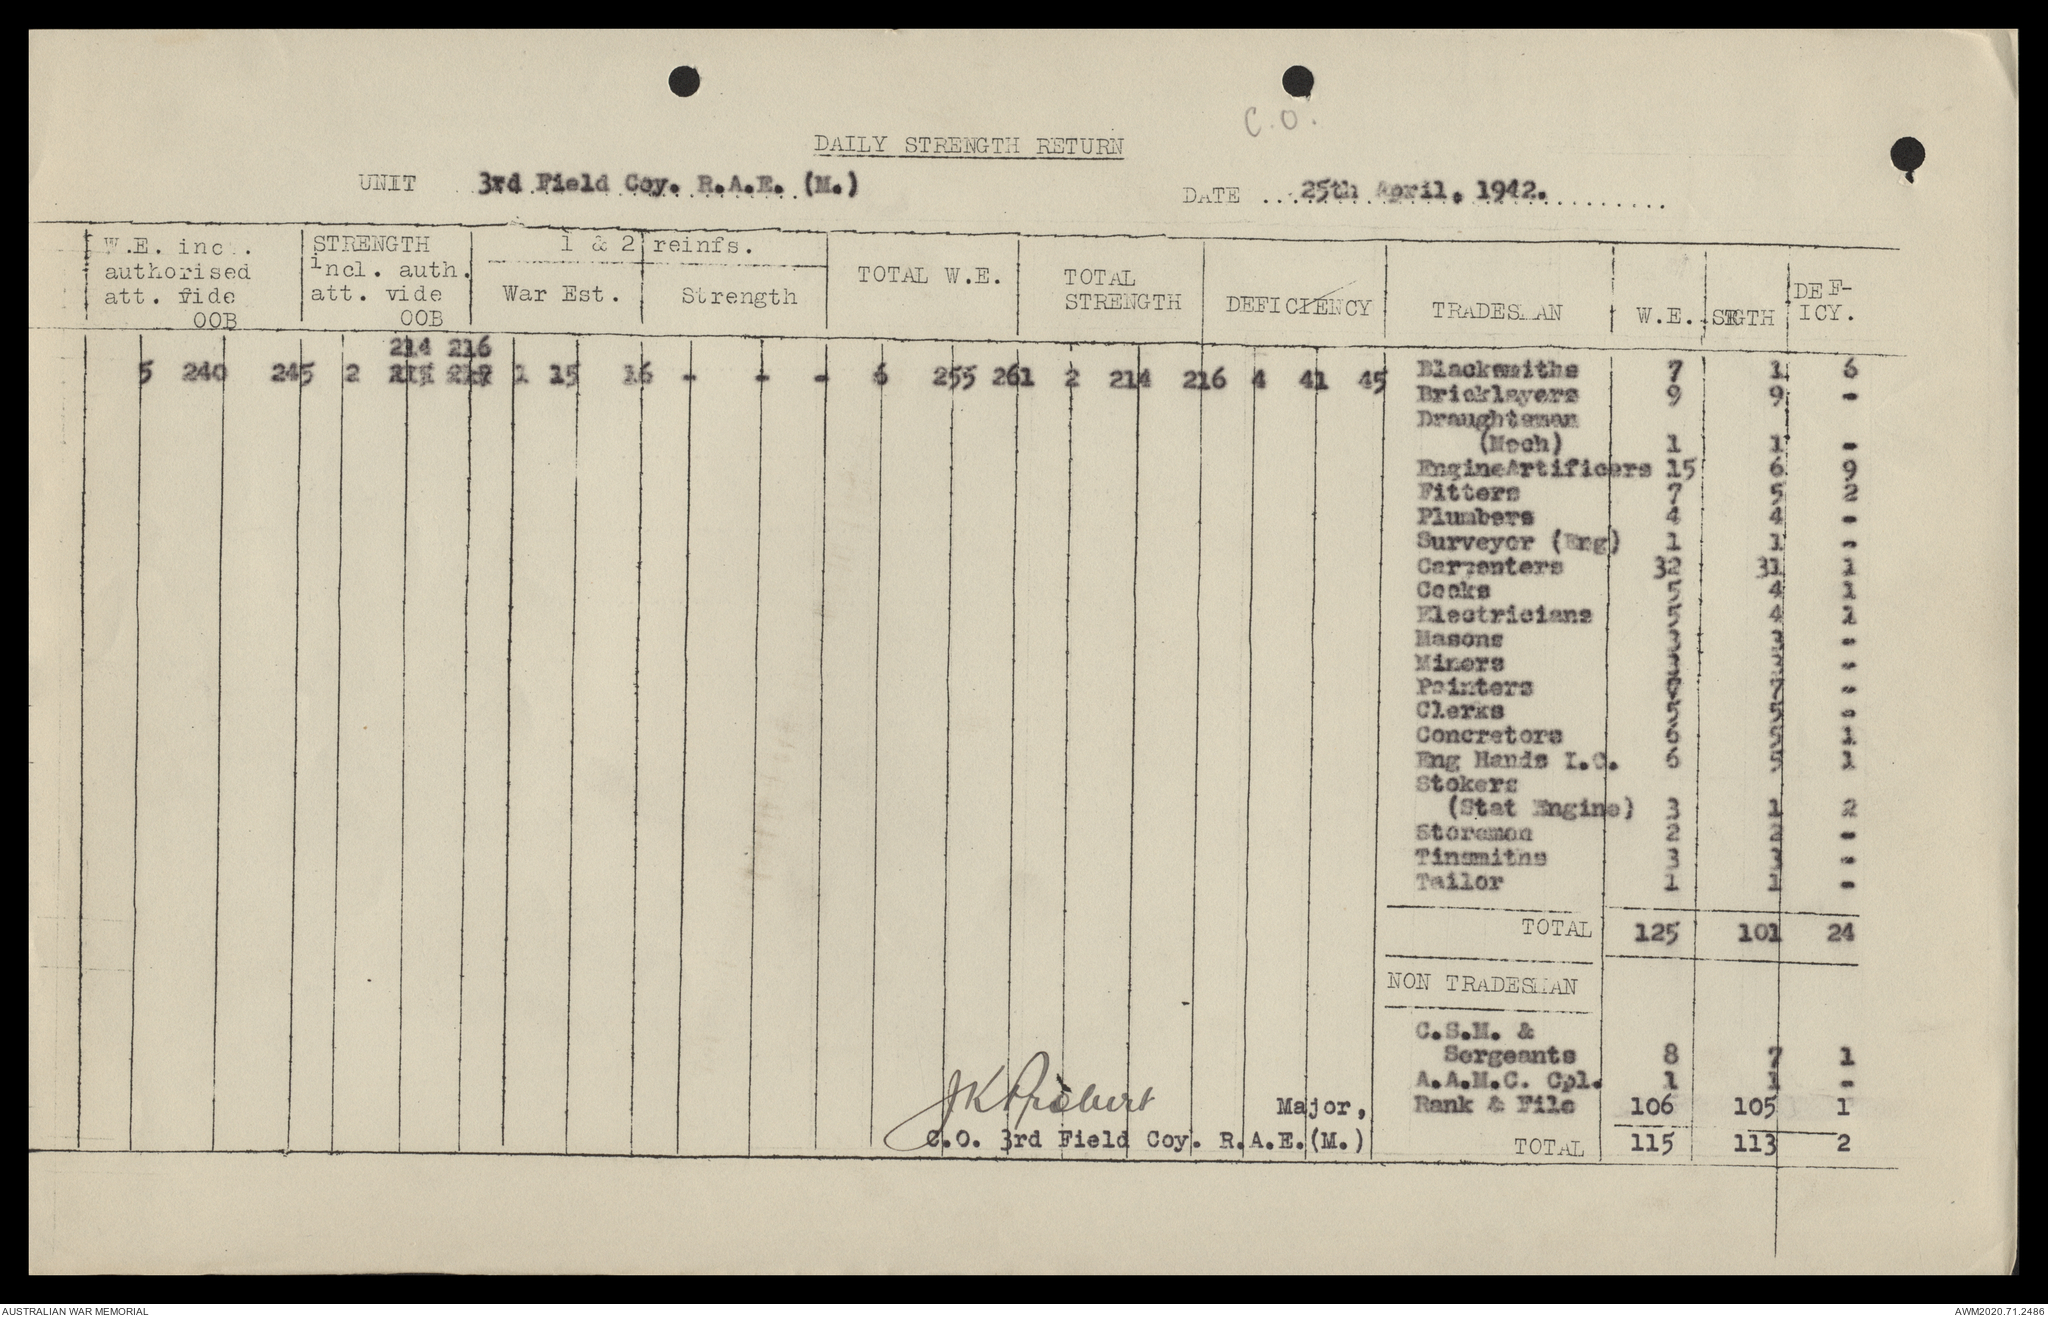 C.O.
DAILY STRENGTH RETURN
UNIT 3rd Field Coy. R.A.E. (M.)
DATE 25th April, 1942.
W.E. inc . authorised att. vide OOB
STRENGTH incl. auth. att. vide OOB
1 & 2 reinfs.
War Est. Strength
TOTAL W.E.
TOTAL STRENGTH
DEFICIENCY
TRADESMAN W.E. STGTH DEF-ICY.
214 216
5 240 245 2 1 15 16 - - - 6 255 261 2 214 216 4 41 45
Blacksmiths 7 1 6
Bricklayers 9 9 -
Draughtsmen
(Mech) 1 1 -
EngineArtificers 15 6 9
Fitters 7 5 2
Plumbers 4 4 -
Surveyor (Eng) 1 1 -
Carpenters 32 31 1
Cooks 5 4 1
Electricians 5 4 1
Masons 3 3 -
Miners 3 3 -
Painters 7 7 -
Clerks 5 5 -
Concretors 6 5 1
Eng Hands I.C. 6 5 1
Stokers
(Stat Engine) 3 1 2
Storemen 2 2 -
Tinsmiths 3 3 -
Tailor 1 1 -
TOTAL 125 101 24
NON TRADESMAN
C.S.M. &
Sergeants 8 7 1
A.A.M.C. Cpl. 1 1 -
Rank & File 106 105 1
TOTAL 115 113 2
JKProbert Major,
C.O. 3rd Field Coy. R.A.E.(M.)
AUSTRALIAN WAR MEMORIAL
AWM2020.71.2486